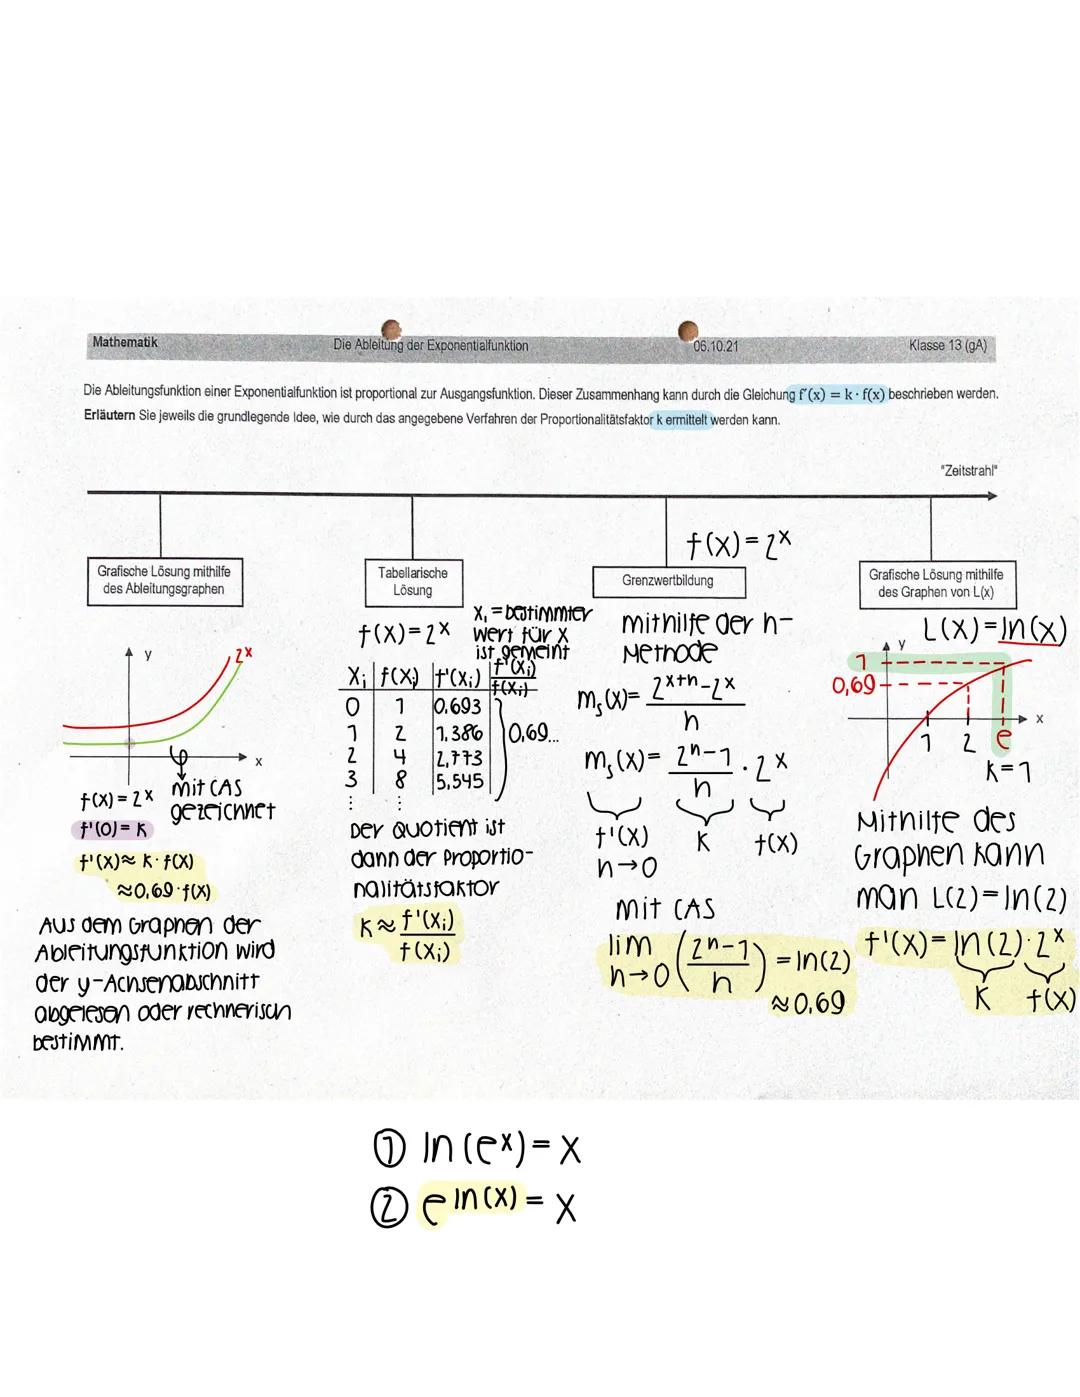 Mathematik Die Ableitung der Exponentialfunktion 06.10.21 Klasse 13 (gA)
Die Ableitungsfunktion einer Exponentialfunktion ist proportional zur Ausgangsfunktion. Dieser Zusammenhang kann durch die Gleichung f'(x) = k · f(x) beschrieben werden.
Erläutern Sie jeweils die grundlegende Idee, wie durch das angegebene Verfahren der Proportionalitätsfaktor k ermittelt werden kann.
"Zeitstrahl"
Grafische Lösung mithilfe
des Ableitungsgraphen
y
2^x
x
φ
mit CAS
gezeichnet
f(x) = 2^x
f'(0) = K
f'(x) ≈ K · f(x)
≈ 0,69 · f(x)
Aus dem Graphen der
Ableitungsfunktion wird
der y-Achsenabschnitt
abgelesen oder rechnerisch
bestimmt.
Tabellarische
Lösung
f(x) = 2^x
x, = bestimmter
Wert für x
ist gemeint
x_i | f(x_i) | f'(x_i) | f'(x_i)/f(x_i)
0 | 1 | 0.693
1 | 2 | 1,386
2 | 4 | 2,773
3 | 8 | 5,545
⋮ ⋮
0,69...
Der Quotient ist
dann der Proportio-
nalitätsfaktor
K ≈ f'(x_i)/f(x_i)
f(x) = 2^x
Grenzwertbildung
mithilfe der h-
Methode
m_s(x) = (2^{x+h} - 2^x)/h
m_s(x) = (2^h - 1)/h · 2^x
f'(x) K f(x)
h→0
mit CAS
lim h→0 ((2^h - 1)/h) = ln(2)
≈ 0,69
Grafische Lösung mithilfe
des Graphen von L(x)
L(x) = ln(x)
y
1
0,69
x
1 2 e
K = 1
Mithilfe des
Graphen kann
man L(2) = ln(2)
f'(x) = ln(2) · 2^x
K f(x)
① ln(e^x) = x
② e^{ln(x)} = x